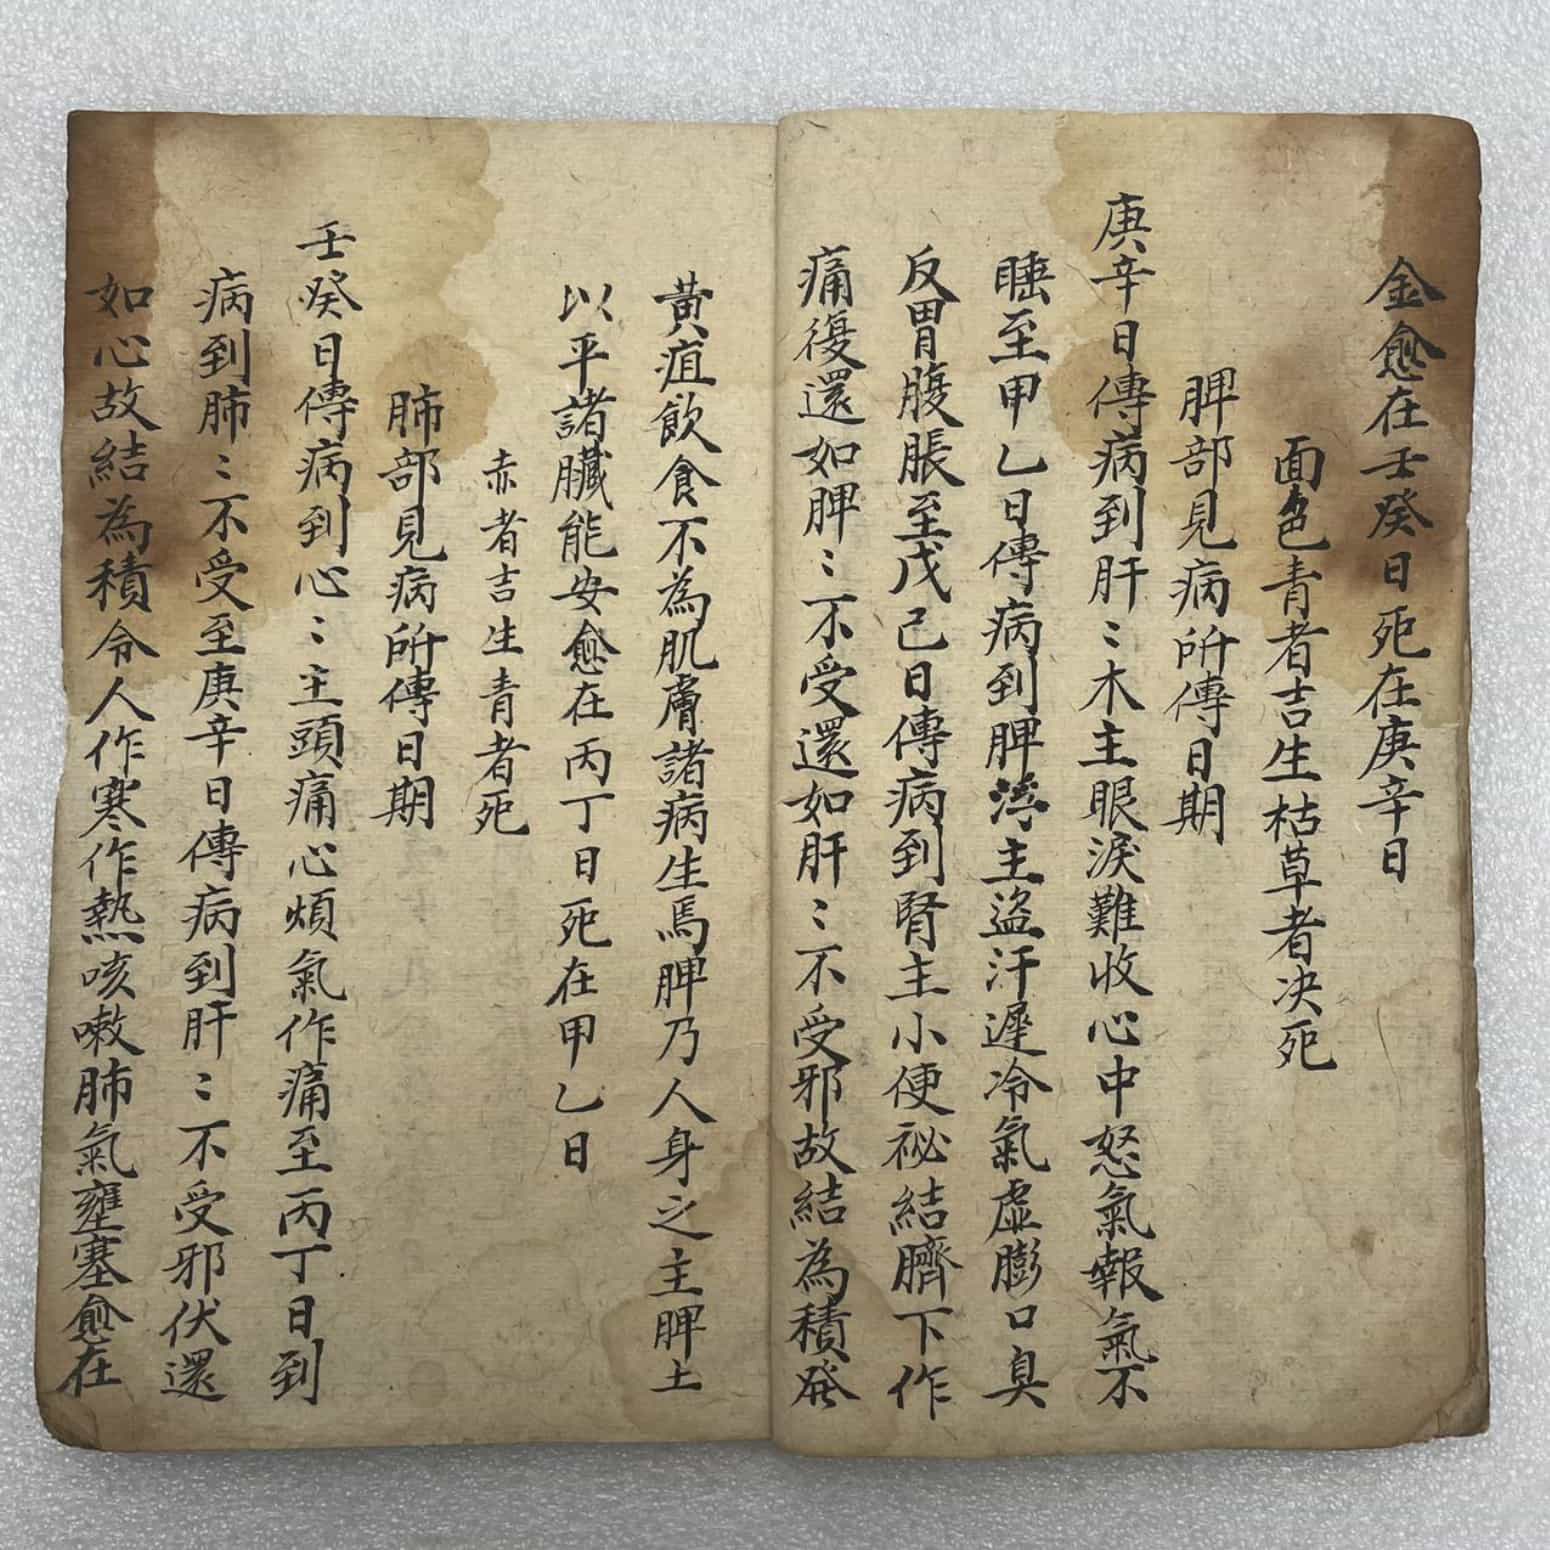 金愈在壬癸日死在庚辛日
面色青者吉生枯草者决死
脾部見病所傳日期
庚辛日傳病到肝〻木主眼淚難收心中怒氣報氣不
睡至甲乙日傳病到脾主盜汗遲冷氣虛膨口臭
反胃腹脹至戊己日傳病到腎主小便祕結臍下作
痛復還如脾〻不受還如肝〻不受邪故結為積發
黃疸飲食不為肌膚諸病生焉脾乃人身之主脾土
以平諸臟能安愈在丙丁日死在甲乙日
赤者吉生青者死
肺部見病所傳日期
壬癸日傳病到心〻主頭痛心煩氣作痛至丙丁日到
病到肺〻不受至庚辛日傳病到肝〻不受邪伏還
如心故結為積令人作寒作熱咳嗽肺氣壅塞愈在